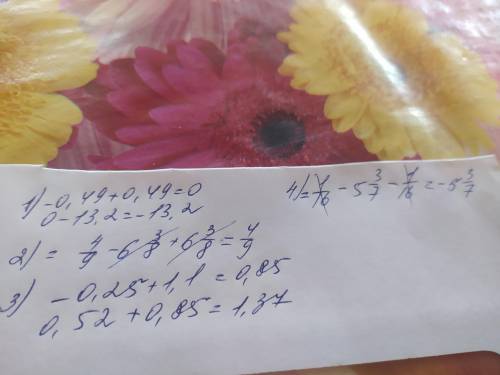 1) -0,49+0,49=0
0-13,2=-13,2
2) = 4/9 - 6 3/8 + 6 3/8 = 4/9
3) -0,25+1,1=0,85
0,52+0,85=1,37
4) = 1/16 - 5 3/7 - 1/16 = -5 3/7